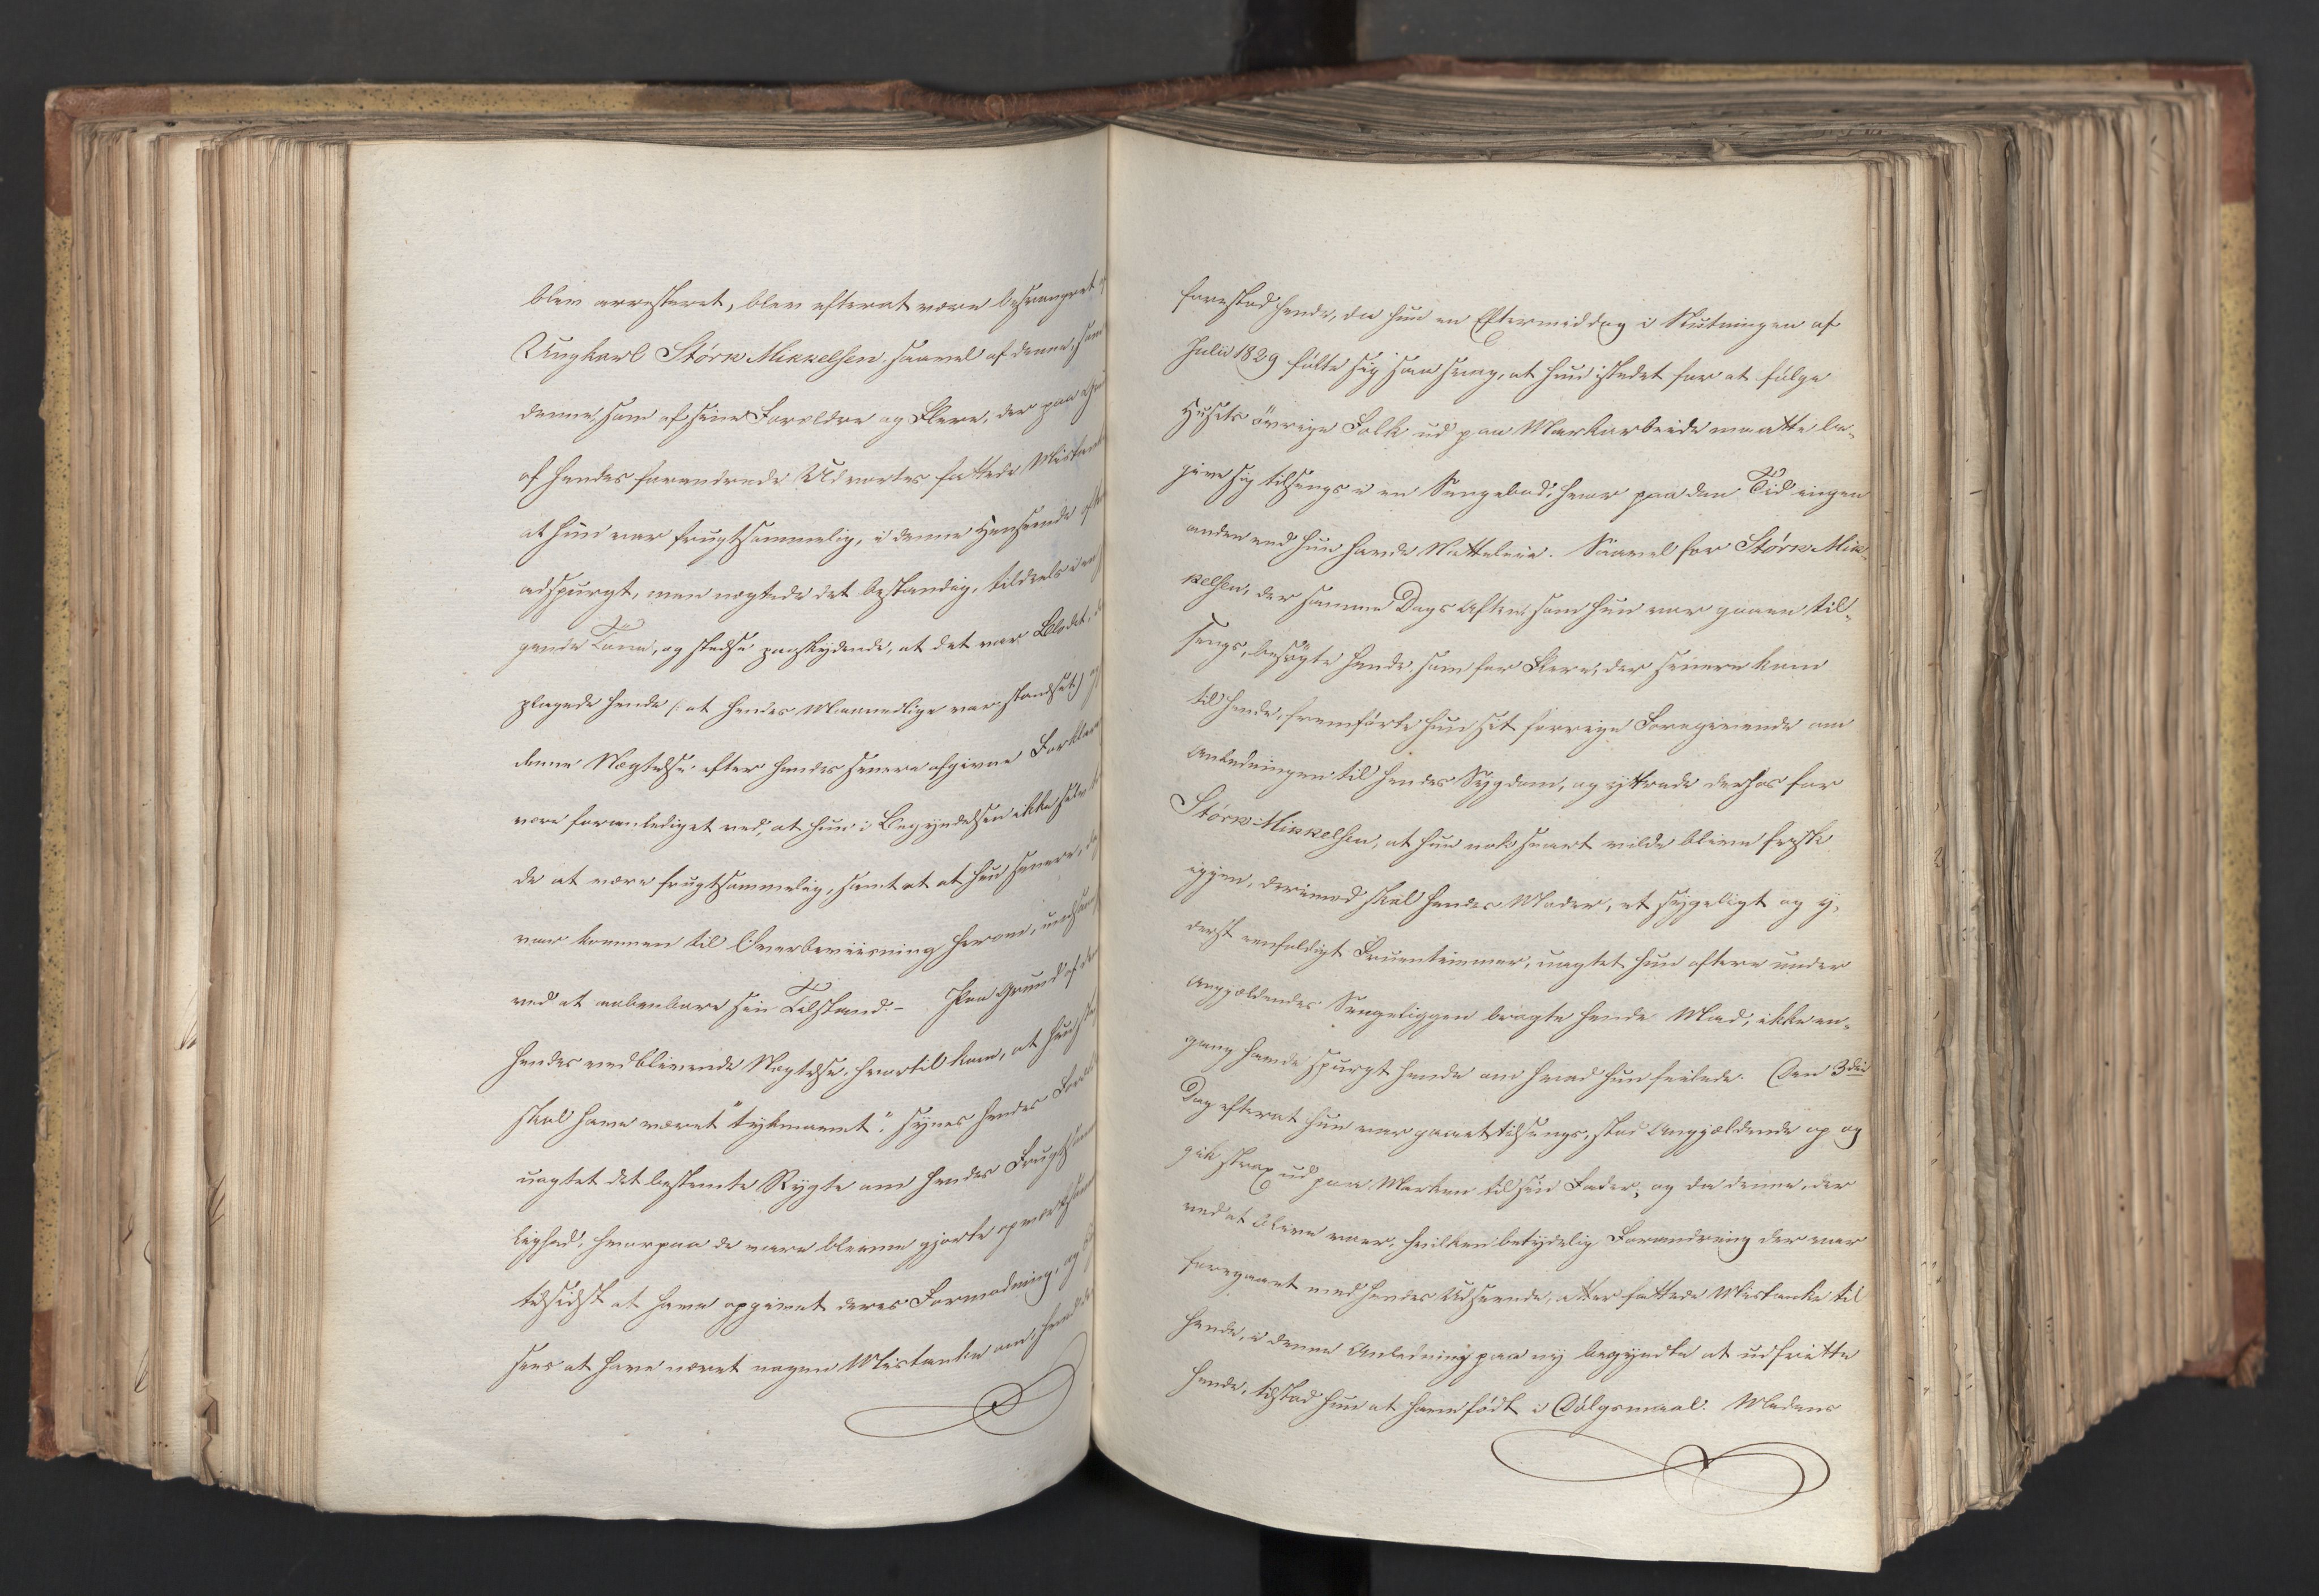 blev arresteret, blev efterat være besvangret
Ungkarl Störk Mikkelsen, saavel af denne, som
denne, som af sine Forældre og Flere, der paa
af hendes forandrede Udvortes fattede Mistanke
at hun var frugtsommelig, i denne Henseende
adspurgt, men nægtede det bestandig, tildeels i
gende Tone, og stedse paaskydende, at det var Blodet, der
plagede hende (: at hendes Maanedlige var standset)
denne Nægtelse efter hendes senere afgivne
være foranlediget ved, at hun i Begyndelsen ikke
de at være frugtsommelig, samt at at hun senere, da
var kommen til Overbeviisning herom,
ved at aabenbare sin Tilstand. – Paa Grund af
hendes vedblivende Nægtelse, hvortil kom, at hun
skal have været "tykmavet", synes hendes
uagtet det bestemte Rygte om hendes
lighed, hvorpaa de vare blevne gjorte
tilsidst at have opgivet deres Formodning, og
sees at have næret nogen Mistanke om, hvad der
forestod hende, da hun en Eftermiddag i Slutningen af
Julii 1829 følte sig saa svag, at hun istedet for at følge
Husets övrige Folk ud paa Markarbeide maatte be-
give sig tilsengs i en Sengebod, hvor paa den Tid ingen
anden end hun havde Natteleie. Saavel for Störk Mik-
kelsen, der samme Dags Aften, som hun var gaaen til-
sengs, besøgte hende, som for Flere, der senere kom
til hende, fremførte hun sit forrige Foregivende om
Anledningen til hendes Sygdom, og yttrede derhos for
Störk Mikkelsen, at hun nok snart vilde blive frisk
igjen, derimod skal hendes Moder, et sygeligt og y-
derst eenfoldigt Fruentimmer, uagtet hun oftere under
Angjældendes Sengeliggen bragte hende Mad, ikke en-
gang havde spurgt hende om hvad hun feilede. Den 3die
Dag efterat hun var gaaet tilsengs, stod Angjældende op og
gik strax ud paa Marken til sin Fader, og da denne, der
ved at blive vaer, hvilken betydelig Forandring der var
foregaaet med hendes Udseende, atter fattede Mistanke til
hende, i denne Anledning paa ny begyndte at udfritte
hende, tilstod hun at have født i Dølgsmaal. Medens